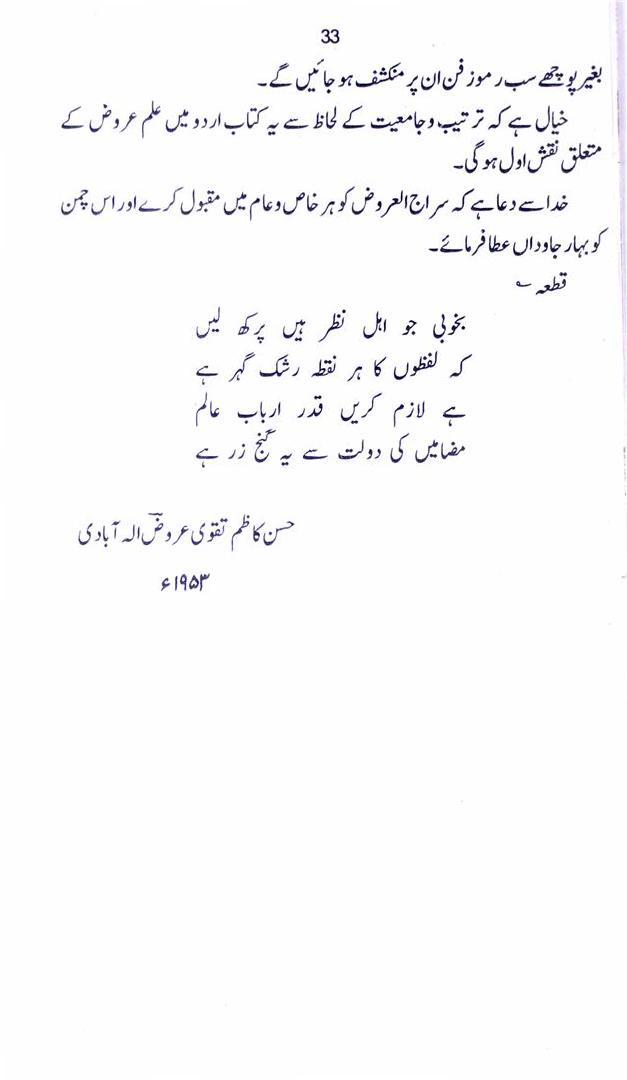 33
بغیر پوچھے سب رموز فن ان پر منکشف ہو جائیں گے۔
خیال ہے کہ ترتیب و جامعیت کے لحاظ سے یہ کتاب اردو میں علم عروض کے
متعلق نقش اول ہو گی۔
خدا سے دعا ہے کہ سراج العروض کو ہر خاص و عام میں مقبول کرے اور اس چمن
کو بہار جاوداں عطا فرمائے۔
قطعہ ؎
بخوبی جو اہل نظر ہیں پرکھ لیں
کہ لفظوں کا ہر نقطہ رشک گہر ہے
ہے لازم کریں قدر ارباب عالم
مضامیں کی دولت سے یہ گنج زر ہے
حسن کاظم تقوی عروضؔ الہ آبادی
۱۹۵۳ء